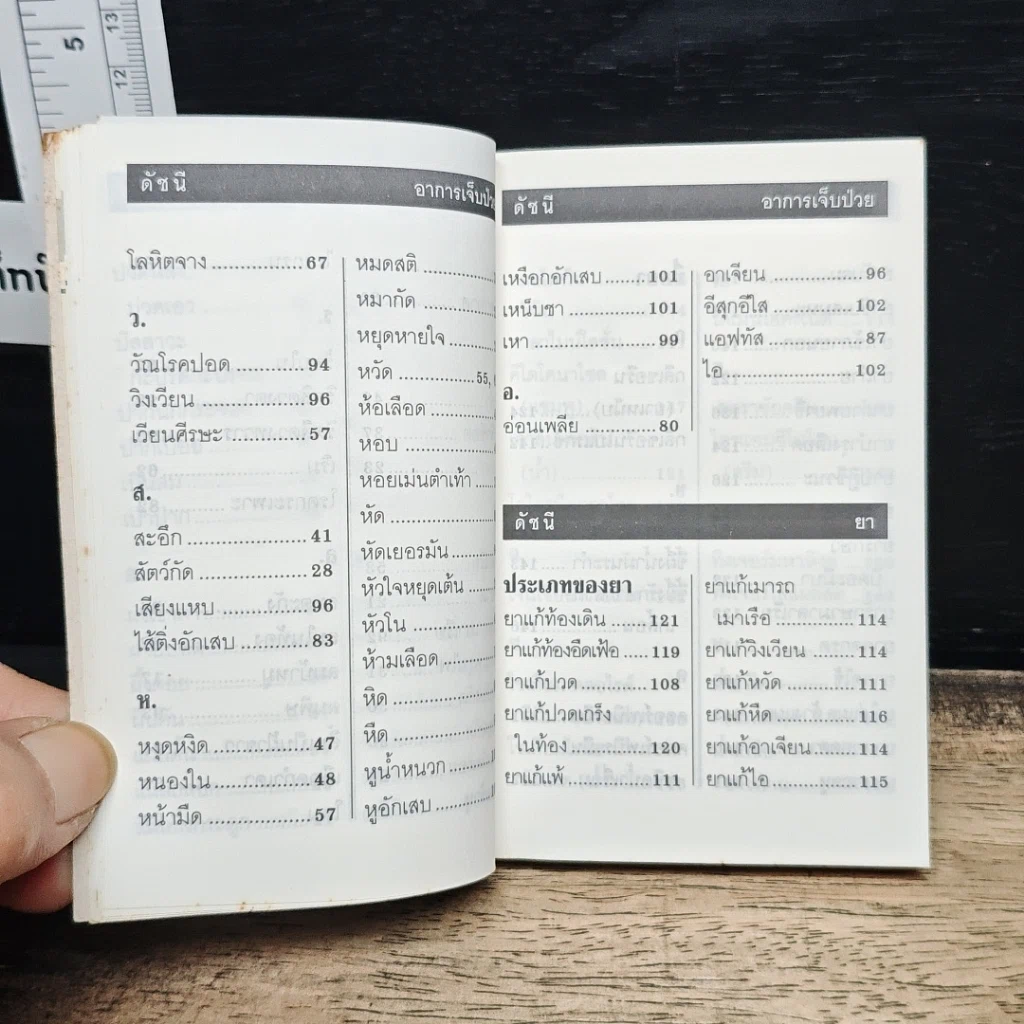 5
13
12
ดัชนี
อาการเจ็บป่วย
โลหิตจาง 67
ว.
วัณโรคปอด 94
วิงเวียน 96
เวียนศีรษะ 57
ส.
สะอึก 41
สัตว์กัด 28
เสียงแหบ 96
ไส้ติ่งอักเสบ 83
ห.
หงุดหงิด 47
หนองใน 48
หน้ามืด 57
หมดสติ
หมากัด
หยุดหายใจ
หวัด 55,
ห้อเลือด
หอบ
หอยเม่นตำเท้า
หัด
หัดเยอรมัน
หัวใจหยุดเต้น
หัวโน
ห้ามเลือด
หิด
หืด
หูน้ำหนวก
หูอักเสบ
ดัชนี
อาการเจ็บป่วย
เหงือกอักเสบ 101
เหน็บชา 101
เหา 99
อ.
อ่อนเพลีย 80
อาเจียน 96
อีสุกอีใส 102
แอฟทัส 87
ไอ 102
ดัชนี
ยา
ประเภทของยา
ยาแก้ท้องเดิน 121
ยาแก้ท้องอืดเฟ้อ 119
ยาแก้ปวด 108
ยาแก้ปวดเกร็ง
ในท้อง 120
ยาแก้แพ้ 111
ยาแก้เมารถ
เมาเรือ 114
ยาแก้วิงเวียน 114
ยาแก้หวัด 111
ยาแก้หืด 116
ยาแก้อาเจียน 114
ยาแก้ไอ 115